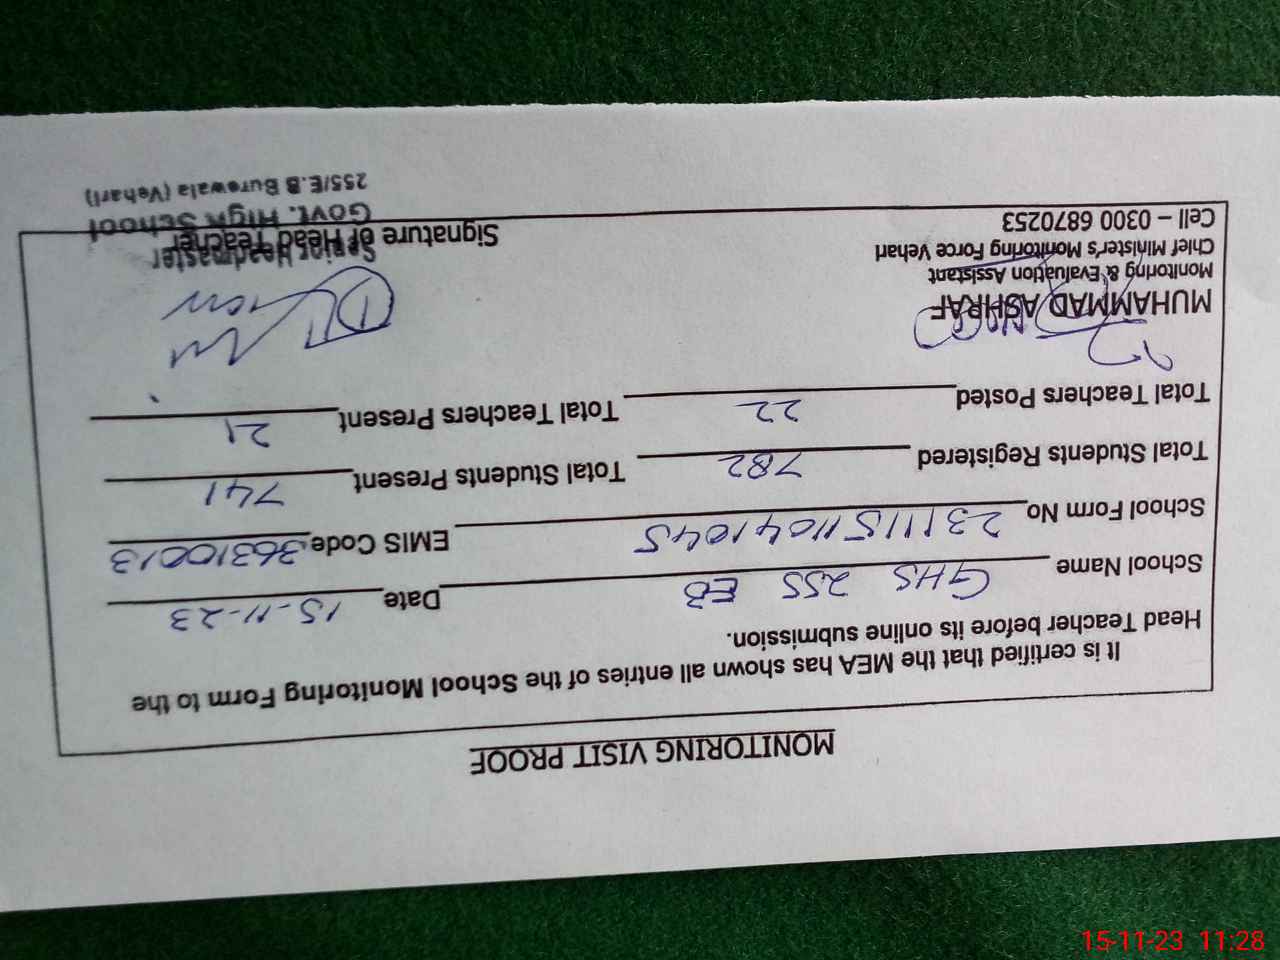 MONITORING VISIT PROOF
It is certified that the MEA has shown all entries of the School Monitoring Form to the
Head Teacher before its online submission.
School Name GHS 255 EB Date 15-11-23
School Form No 23111511041045 EMIS Code 36310013
Total Students Registered 782 Total Students Present 741
Total Teachers Posted 22 Total Teachers Present 21
MUHAMMAD ASHRAF
Monitoring & Evaluation Assistant
Chief Minister's Monitoring Force Vehari
Cell – 0300 6870253
Signature of Head Teacher
Senior Headmaster
Govt. High School
255/E.B Burewala (Vehari)
15-11-23 11:28